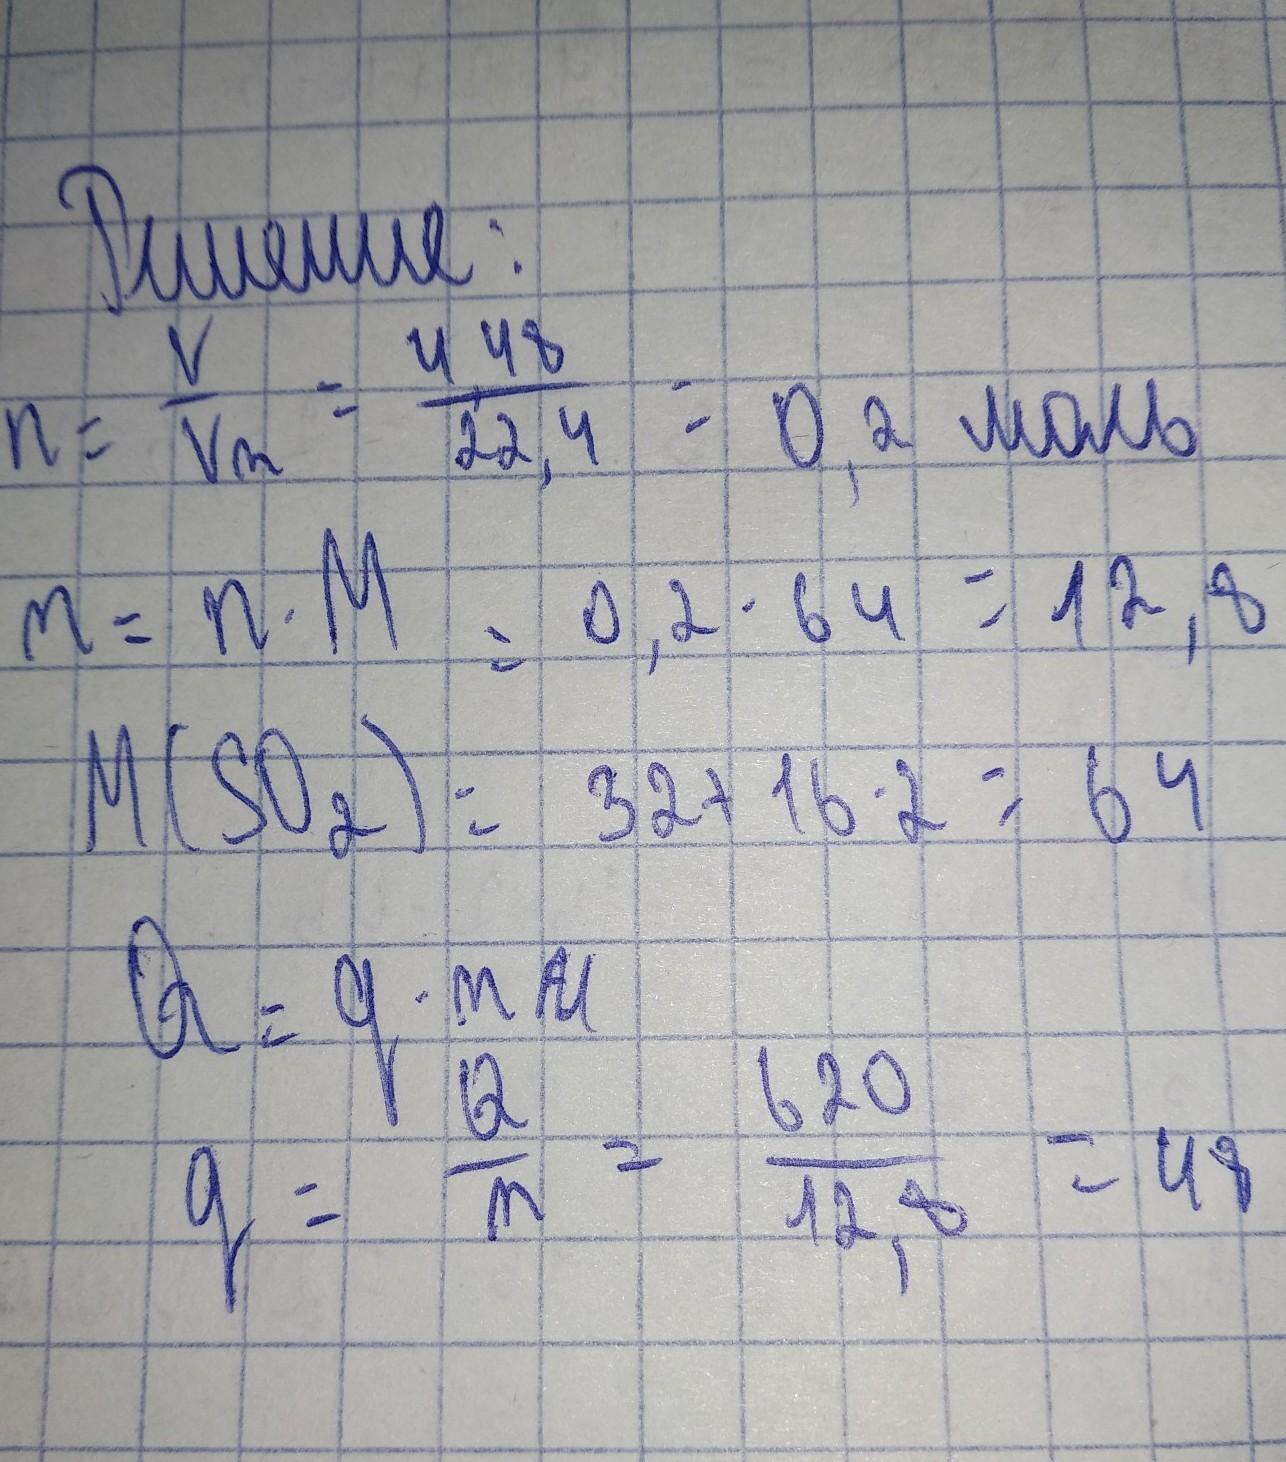 Решение:
n = V/Vm = 4,48/22,4 = 0,2 моль
m = n · M = 0,2 · 64 = 12,8
M(SO₂) = 32 + 16 · 2 = 64
Q = q · m
q = Q/m = 620/12,8 = 48